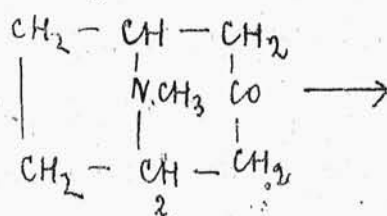 CH2 - CH - CH2
N.CH3 CO ⟶
CH2 - CH - CH2
2